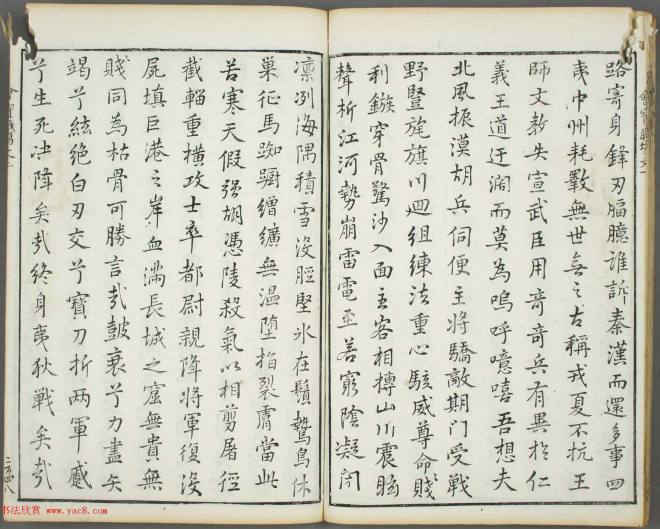 路寄身鋒刃腷臆誰訴秦漢而還多事四
夷中州耗斁無世無之古稱戎夏不抗王
師文教失宣武臣用奇奇兵有異於仁
義王道迂闊而莫為嗚呼噫嘻吾想夫
北風振漠胡兵伺便主將驕敵期門受戰
野豎旄旗川迴組練法重心駭威尊命賤
利鏃穿骨驚沙入面主客相搏山川震眩
聲析江河勢崩雷電至若窮陰凝閉
凛冽海隅積雪沒脛堅氷在鬚鷙鳥休
巢征馬踟躕繒纊無温墮指裂膚當此
苦寒天假强胡憑陵殺氣以相剪屠徑
截輜重橫攻士卒都尉親降將軍復沒
屍填巨港之岸血滿長城之窟無貴無
賤同為枯骨可勝言哉鼓衰兮力盡矢
竭兮絃絕白刃交兮寶刀折两軍蹙
兮生死决降矣哉終身夷狄戰矣哉
书法欣赏 www.yac8.com